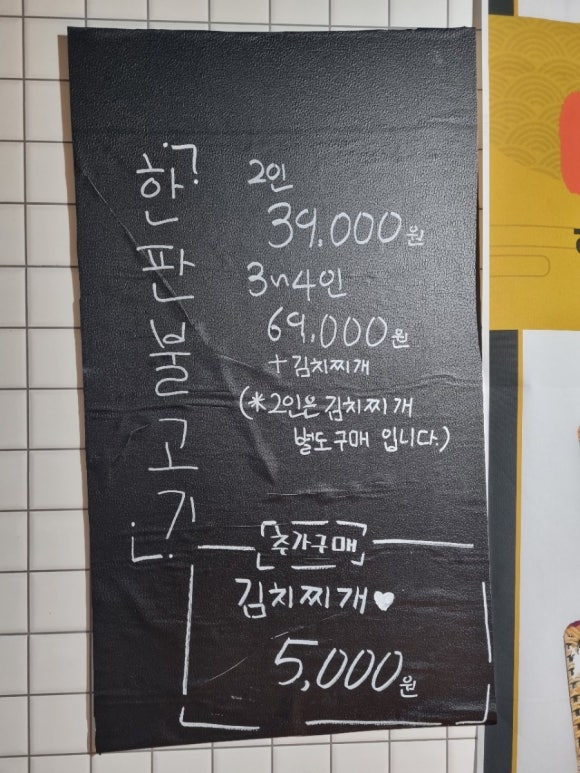 한판불고기
2인
39,000원
3~4인
69,000원
+김치찌개
(※2인은 김치찌개
별도구매 입니다.)
추가구매
김치찌개♥
5,000원